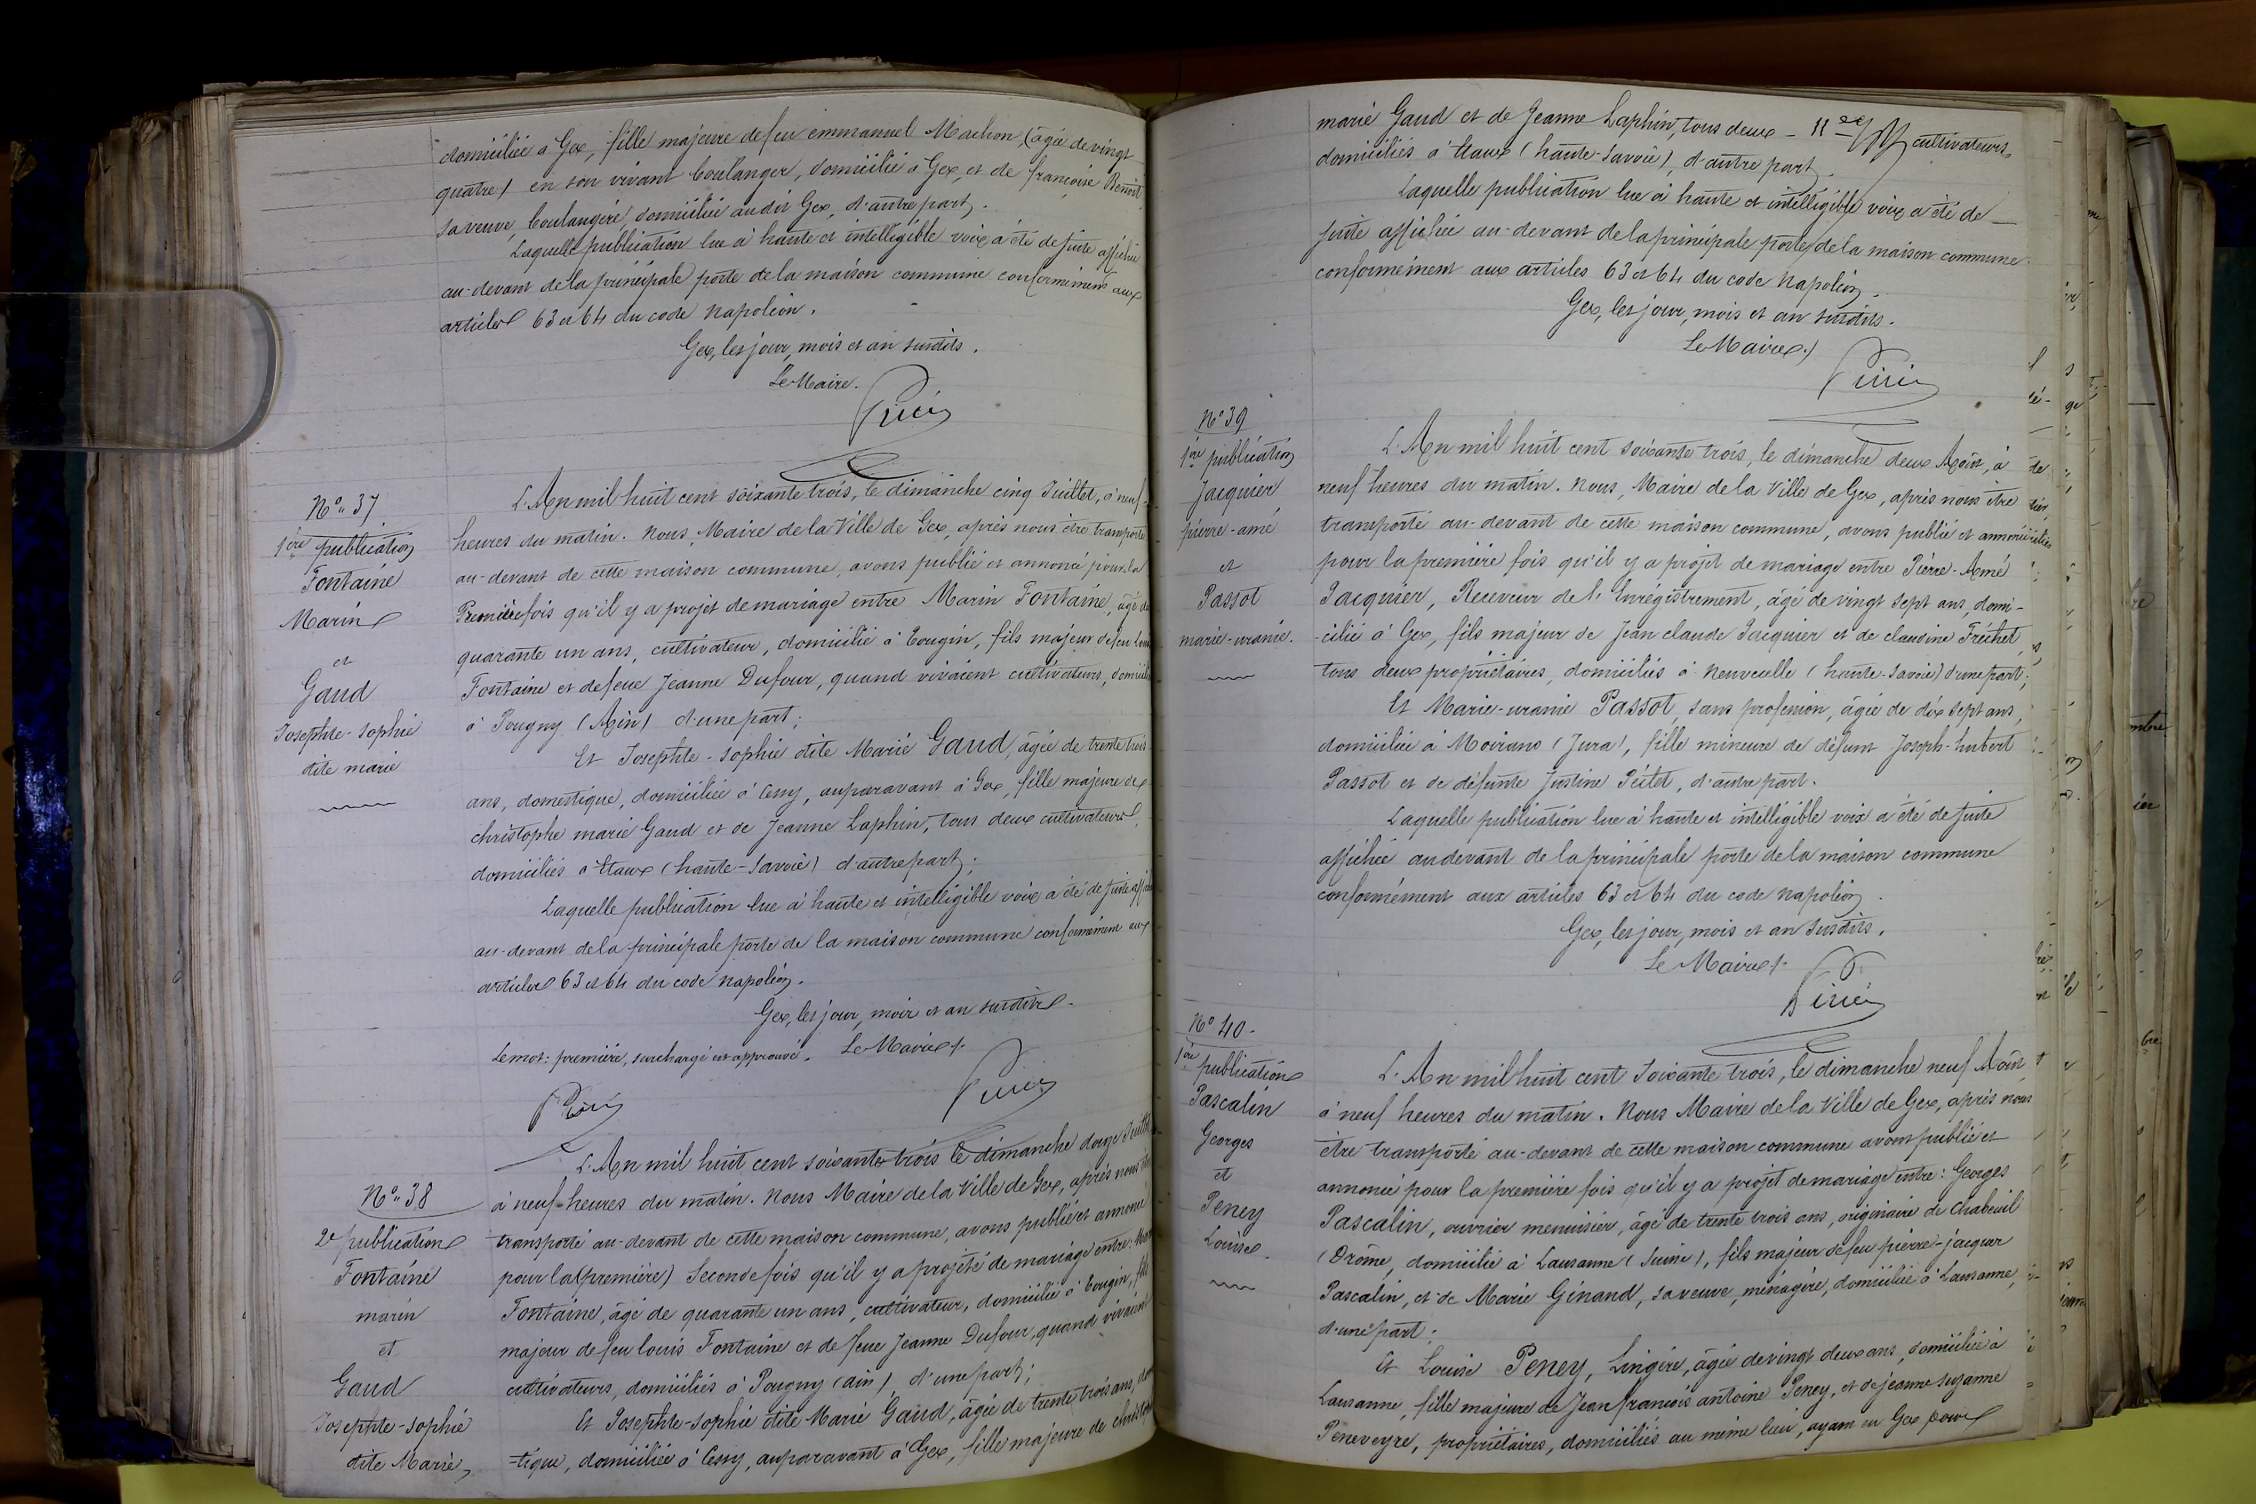 domiciliée à Gex, fille majeure de feu emmanuel Machon, (âgée de vingt
quatre) en son vivant boulanger, domicilié à Gex, et de françoise Benoit
sa veuve, boulangère, domiciliée audit Gex, d'autre part.
Laquelle publication lue à haute et intelligible voix a été de suite affichée
au-devant de la principale porte de la maison commune conformément aux
articles 63 et 64 du code Napoléon.
Gex, les jour, mois et an susdits.
Le Maire.
N° 37
1ère publication
Fontaine
Marin
et
Gaud
Josephte-Sophie
dite marie
L'An mil huit cent soixante trois, le dimanche cinq Juillet, à neuf
heures du matin. Nous, Maire de la Ville de Gex, après nous être transporté
au-devant de cette maison commune, avons publié et annoncé pour la
Première fois qu'il y a projet de mariage entre Marin Fontaine, âgé de
quarante un ans, cultivateur, domicilié à Tougin, fils majeur de feu Louis
Fontaine et de feue Jeanne Dufour, quand vivaient cultivateurs, domiciliés
à Pougny (Ain) d'une part;
Et Josephte-Sophie dite Marie Gaud, âgée de trente trois
ans, domestique, domiciliée à Cessy, auparavant à Gex, fille majeure de
christophe marie Gaud et de Jeanne Laphin, tous deux cultivateurs,
domiciliés à Etaux (haute-Savoie) d'autre part;
Laquelle publication lue à haute et intelligible voix a été de suite affichée
au-devant de la principale porte de la maison commune conformément aux
articles 63 et 64 du code napoléon.
Gex, les jour, mois et an susdits.
Le mot: première, surchargé est approuvé. Le Maire
N° 38
2e publication
Fontaine
marin
et
Gaud
Josephte-Sophie
dite Marie
L'An mil huit cent soixante trois le dimanche douze Juillet
à neuf heures du matin. Nous Maire de la Ville de Gex, après nous être
transporté au-devant de cette maison commune, avons publié et annoncé
pour la (première) Seconde fois qu'il y a projeté de mariage entre: Marin
Fontaine, âgé de quarante un ans, cultivateur, domicilié à Tougin, fils
majeur de feu louis Fontaine et de feue Jeanne Dufour, quand vivaient
cultivateurs, domiciliés à Pougny (ain), d'une part;
Et Josephte-Sophie dite Marie Gaud, âgée de trente trois ans, domes
-tique, domiciliée à Cessy, auparavant à Gex, fille majeure de christophe
marie Gaud et de Jeanne Laphin, tous deux - cultivateurs,
domiciliés à Etaux (haute-Savoie), d'autre part.
Laquelle publication lue à haute et intelligible voix a été de
suite affichée au-devant de la principale porte de la maison commune
conformément aux articles 63 et 64 du code Napoléon.
Gex, les jour, mois et an susdits.
Le Maire
N° 39
1ère publication
Jacquier
pierre-amé
et
Passot
marie-uranie.
L'An mil huit cent soixante trois, le dimanche deux Août, à
neuf heures du matin. Nous, Maire de la Ville de Gex, après nous être
transporté au-devant de cette maison commune, avons publié et annoncé
pour la première fois qu'il y a projet de mariage entre Pierre-Amé
Jacquier, Receveur de l'Enregistrement, âgé de vingt sept ans, domi-
-cilié à Gex, fils majeur de Jean claude Jacquier et de claudine Fréchet,
tous deux propriétaires, domiciliés à Neuvecelle (haute-Savoie) d'une part;
Et Marie-uranie Passot, sans profession, âgée de dix sept ans,
domiciliée à Moirans (Jura), fille mineure de défunt Joseph-hubert
Passot et de défunte Justine Péitet, d'autre part.
Laquelle publication lue à haute et intelligible voix a été de suite
affichée au devant de la principale porte de la maison commune
conformément aux articles 63 et 64 du code napoléon.
Gex, les jour, mois et an susdits.
Le Maire
N° 40
1ère publication
Pascalin
Georges
et
Peney
Louise.
L'An mil huit cent soixante trois, le dimanche neuf Août,
à neuf heures du matin. Nous Maire de la Ville de Gex, après nous
être transporté au-devant de cette maison commune avons publié et
annoncé pour la première fois qu'il y a projet de mariage entre: Georges
Pascalin, ouvrier menuisier, âgé de trente trois ans, originaire de Chabeuil
(Drôme, domicilié à Lausanne (Suisse), fils majeur de feu pierre-jacques
Pascalin, et de Marie Ginand, sa veuve, ménagère, domiciliée à Lausanne,
d'une part;
Et Louise Peney, Lingère, âgée de vingt deux ans, domiciliée à
Lausanne, fille majeure de Jean françois antoine Peney, et de jeanne suzanne
Peneveyre, propriétaires, domiciliés au même lieu, ayant eu Gex pour